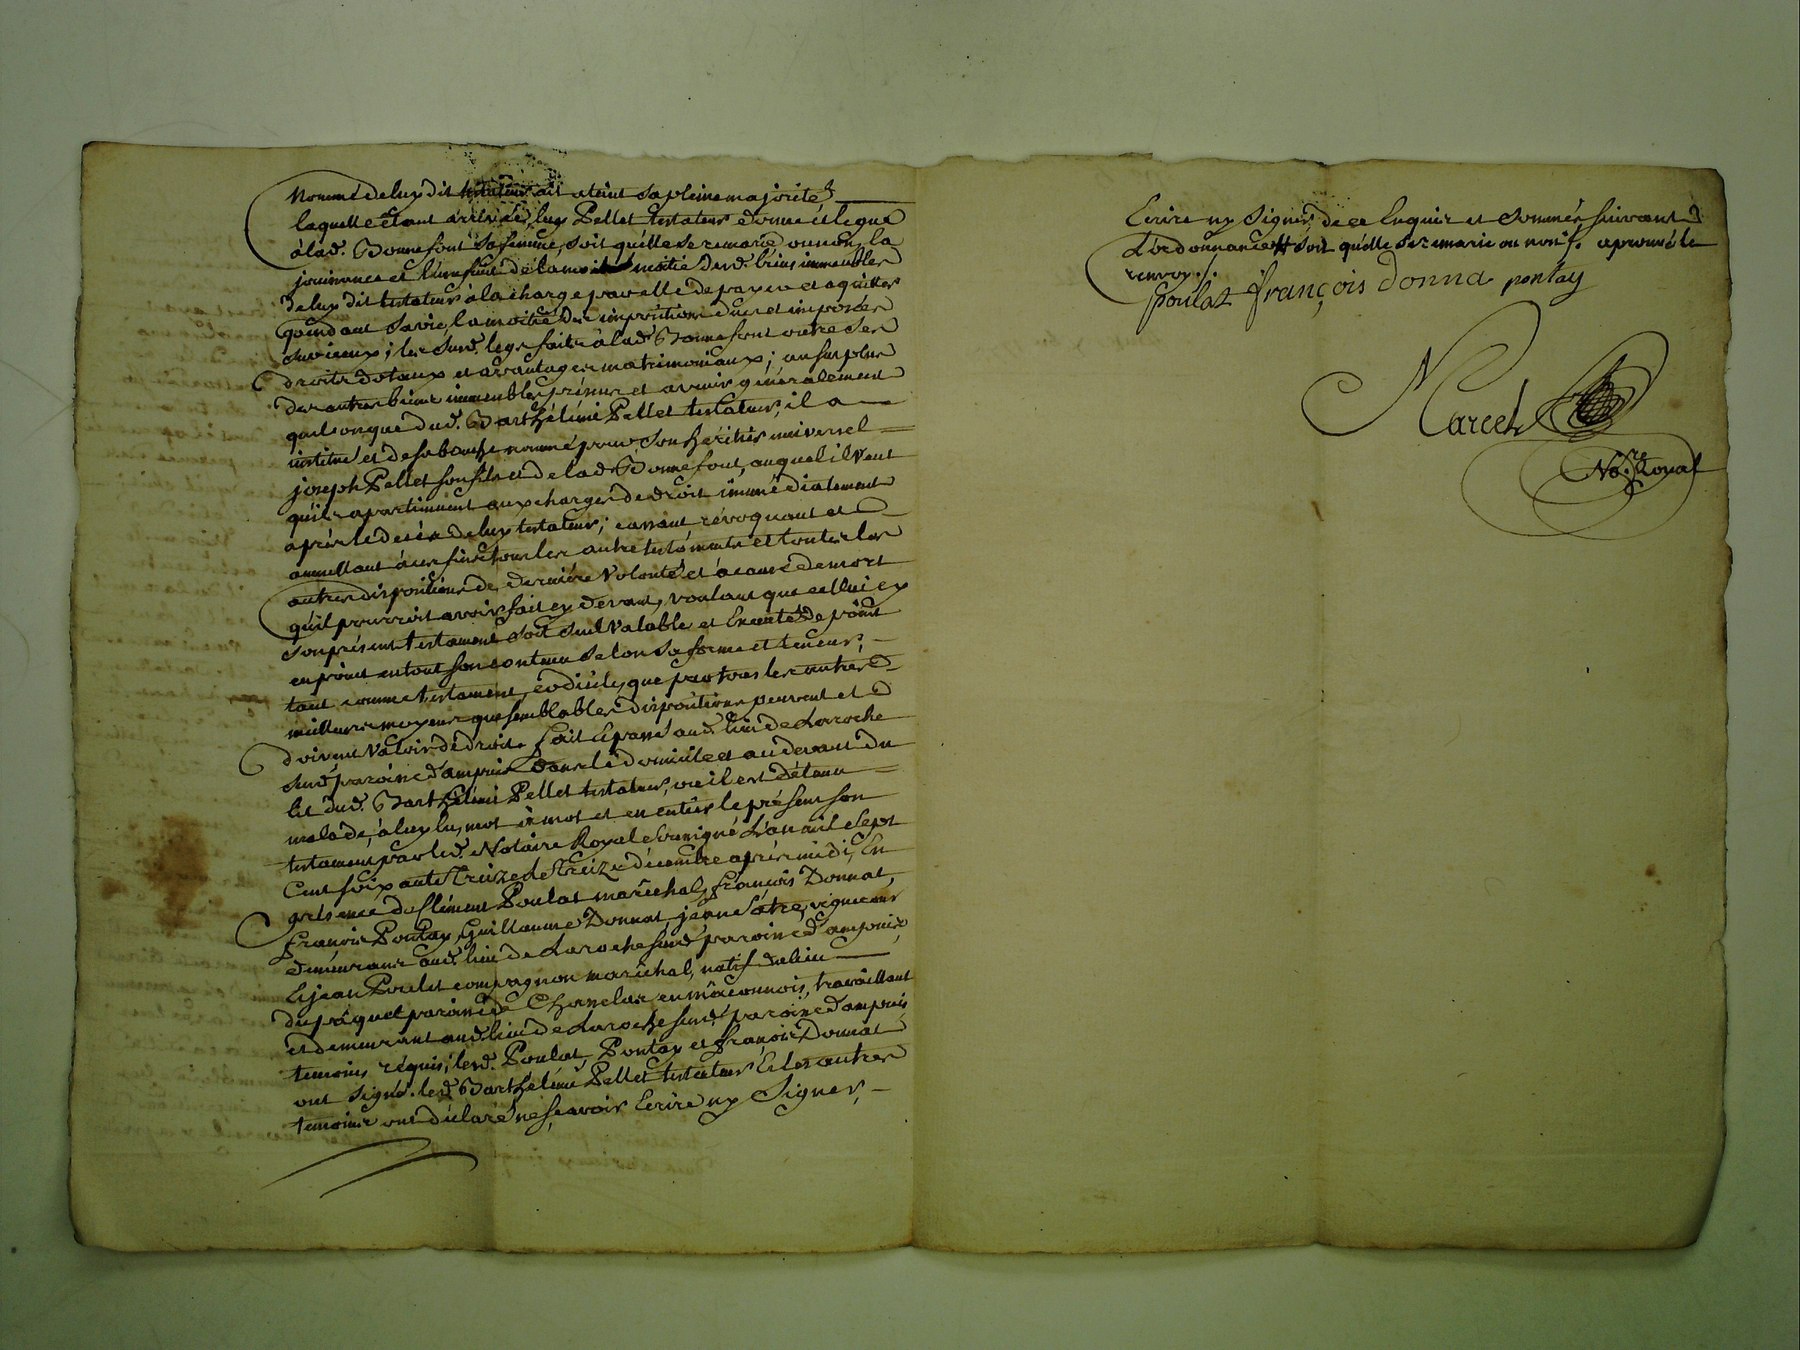 nommé de luy dit testateur ait ateint sa pleine majorité
laquelle étant arrivée, luy Pellet testateur donne et legue
à lad. Bonnefont sa femme, soit qu'elle se remarie ou non, la
jouissance et l'usufruit de la moitié des d. biens immeubles
de luy dit testateur à la charge par elle de payer et aquitter
pendant sa vie, la moitié des impositions dues et imposées
sur iceux; les susd. legs faits à lad. Bonnefont outre ses
droits dotaux et avantages matrimoniaux; au surplus
des autres biens immeubles présens et avenir généralement
quelconque dud. Barthélemi Pellet testateur, il a
institué et de sa bouche nommé pour son héritier universel
joseph Pellet son fils et de lad. Bonnefont, auquel il veut
qu'ils apartiennent aux charges de droit immédiatement
après le décès de luy testateur; cassant révoquant et
annullant à ces fins tous les autre testaments et toutes les
autres dispositions de derniere volonté et à cause de mort
qu'il pourroit avoir fait cy devant, voulant que celluicy
son présent testament soit seul valable et Executé de point
en point en tout son contenu selon sa forme et teneur,
tant comme testament, codicile, que par tous les autres
meilleurs moyens que semblables dispositions peuvent et
doivent valoir de droit. fait et passé aud. lieu de Laroche
susd. paroisse d'ampuis dans le domicile et au devant du
lit dud. Barthélemi Pellet testateur, où il est détenu
malade, à luy lu, mot à mot et en entier le présent son
testament par led. Notaire Royal soussigné L'an mil sept
Cent soixante Treize le Treize décembre après midi, En
présence de Clément Poulat maréchal, françois Donnat,
francois Pontay, Guillaume Donnat, jean vignerons
demeurans aud. lieu de Laroche susd. paroisse d'ampuis,
Et jean compagnon maréchal, natif du lieu
du paquet paroisse de en mâconnois, travaillant
et demeurant aud. lieu de Laroche susd. paroisse d'ampuis
temoins réquis; lesd. Poulat, Pontay et françois Donnat
ont signé. led. Barthélemi Pellet testateur Et les autres
temoins ont déclaré ne sçavoir Ecrire ny Signer,
Ecrire ny Signer, de ce Enquis et sommés suivant
L'ordonnance # soit qu'elle se remarie ou non /. aprouvé le
renvoy /.
poulat françois donna pontay
Marcel
No.re Royal